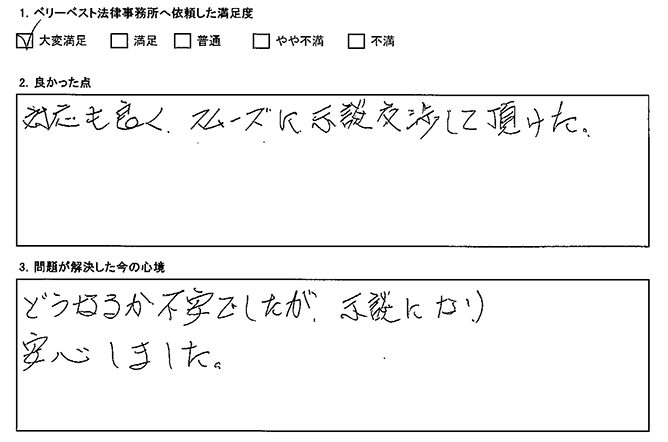 1. ベリーベスト法律事務所へ依頼した満足度
☑ 大変満足 □ 満足 □ 普通 □ やや不満 □ 不満
2. 良かった点
対応も良く、スムーズに示談交渉して頂けた。
3. 問題が解決した今の心境
どうなるか不安でしたが、示談になり
安心しました。